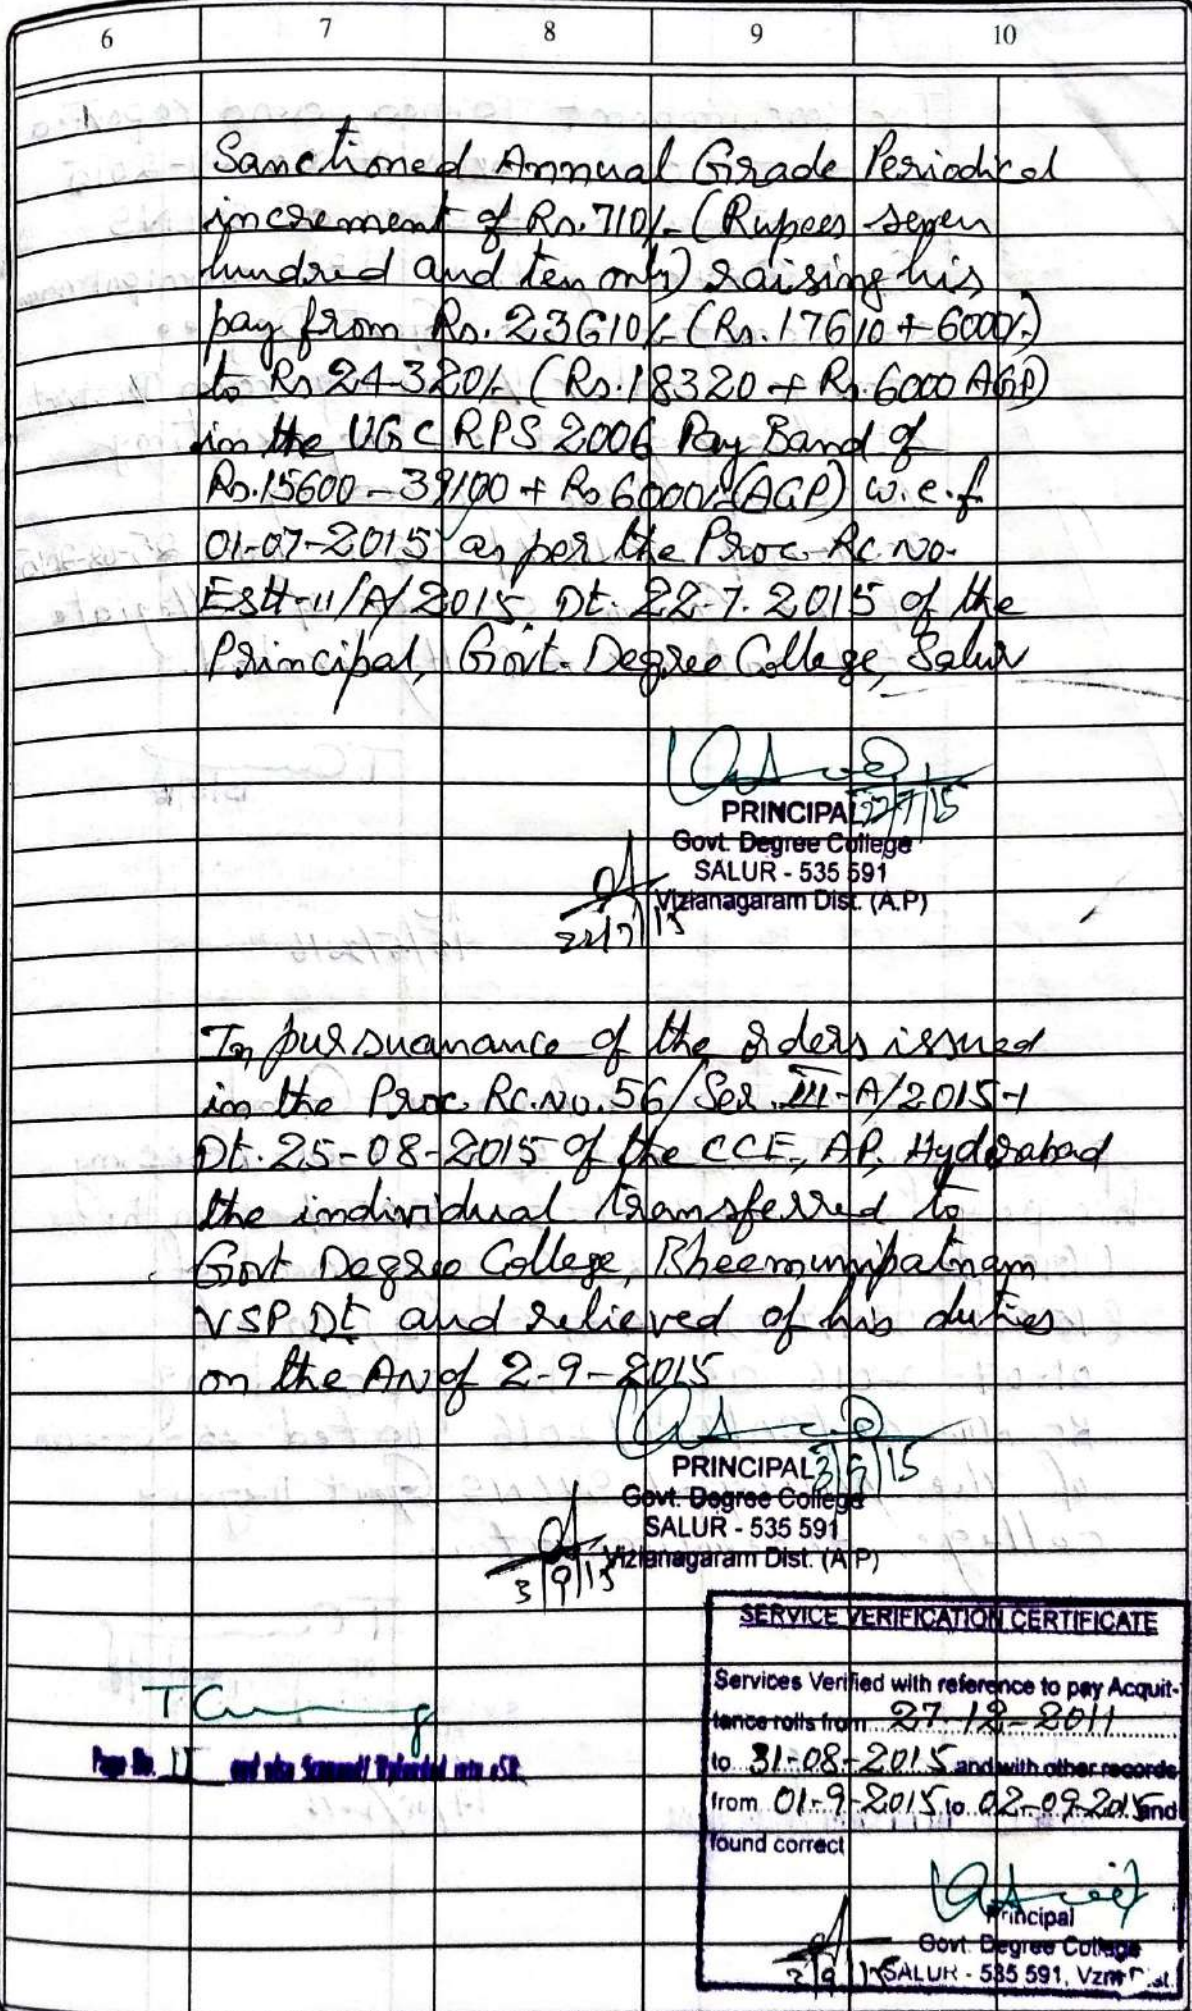 6 7 8 9 10
Sanctioned Annual Grade Periodical
increment of Rs. 710/- (Rupees seven
hundred and ten only) raising his
pay from Rs. 23610/- (Rs. 17610 + 6000/-)
to Rs 24320/- (Rs. 18320 + Rs. 6000 AGP)
in the UGC RPS 2006 Pay Band of
Rs. 15600 - 39100 + Rs 6000/- (AGP) w.e.f
01-07-2015 as per the Proc. Rc. No.
Estt-11/A/2015, Dt. 22-7-2015 of the
Principal, Govt. Degree College, Salur
PRINCIPAL 22/7/15
Govt. Degree College
SALUR - 535 591
Vizianagaram Dist. (A.P)
22/7/15
In pursuanance of the orders issued
in the Proc. Rc. No. 56/Ser. III-A/2015-1
Dt. 25-08-2015 of the CCE, AP, Hyderabad
the individual transferred to
Govt Degree College, Bheemunipatnam
VSP Dt and relieved of his duties
on the AN of 2-9-2015
PRINCIPAL 3/9/15
Govt. Degree College
SALUR - 535 591
Vizianagaram Dist. (A.P)
3/9/15
SERVICE VERIFICATION CERTIFICATE
Services Verified with reference to pay Acquit-
tance rolls from 27-12-2011
to 31-08-2015 and with other records
from 01-9-2015 to 02-09-2015 and
found correct
Page No. and also Scanned/ Uploaded into eSR.
Principal
Govt. Degree College
3/9/15 SALUR - 535 591, Vzm Dist.